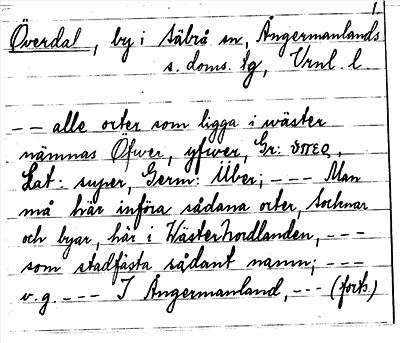 1.
Överdal, by i Säbrå sn, Ångermanlands
s. doms. lg, Vrnl. l.
-- alle orter som ligga i wäster
nämnas Öfwer, yfwer, Gr: ὑπερ,
Lat: super, Germ: Über, --- Man
må här införa sådana orter, Sochnar
och byar, här i Wästerhordlanden, ---
som stadfästa sådant namn; ---
v.g. --- I Ångermanland, --- (forts.)